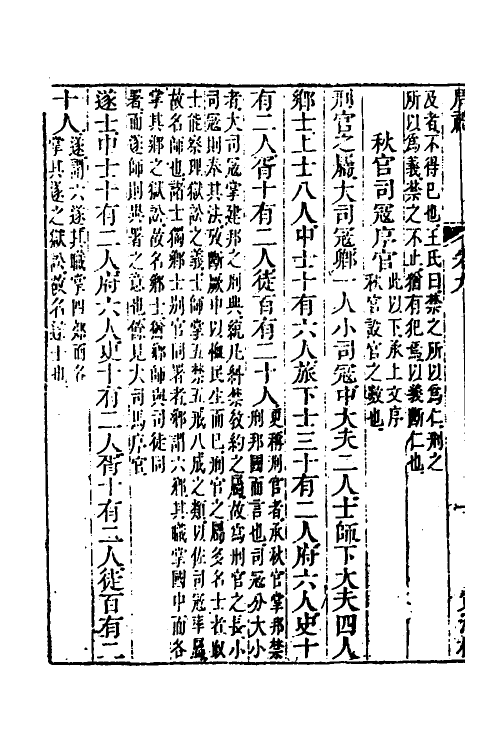 及者不得已也王氏曰禁之所以爲仁刑之
所以爲義禁之不止猶有犯焉以義斷仁也
秋官司寇序官此以下承上文序
秋官設官之數也
刑官之屬大司寇卿一人小司寇中大夫二人士師下大夫四人
鄉士上士八人中士十有六人旅下士三十有二人府六人史十
有二人胥十有二人徒百有二十人更稱刑官者承秋官掌邦禁
刑邦國而言也司寇分大小
者大司寇掌建邦之刑典統凡糾禁敎約之屬故爲刑官之長小
司寇則奉其法攷斷厥中以恤民生而已刑官之屬多名士者取
士能察理獄訟之義士師掌五禁五戒八成之類以佐司寇率屬
故名師也諸士獨鄉士別官同署者鄉謂六鄉其職掌國中而各
掌其鄉之獄訟故名鄉士猶鄉師與司徒同
署而遂師則異署之意也餘見大司馬序官
遂士中士十有二人府六人史十有二人胥十有二人徒百有二
十人遂謂六遂其職掌四郊而各
掌其遂之獄訟故名遂士也